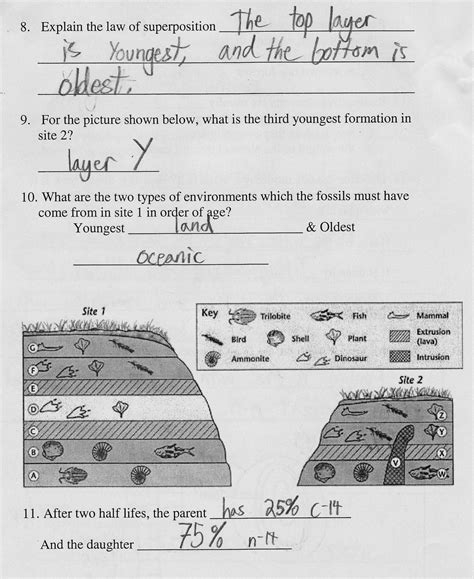 8. Explain the law of superposition The top layer
is Youngest, and the bottom is
oldest.
9. For the picture shown below, what is the third youngest formation in
site 2?
layer Y
10. What are the two types of environments which the fossils must have
come from in site 1 in order of age?
Youngest land & Oldest
oceanic
Site 1
Key Trilobite Fish Mammal
Bird Shell Plant Extrusion
(lava)
Ammonite Dinosaur Intrusion
Site 2
G
F
E
D
C
B
A
Z
Y
X
V
W
11. After two half lifes, the parent has 25% C-14
And the daughter 75% n-14